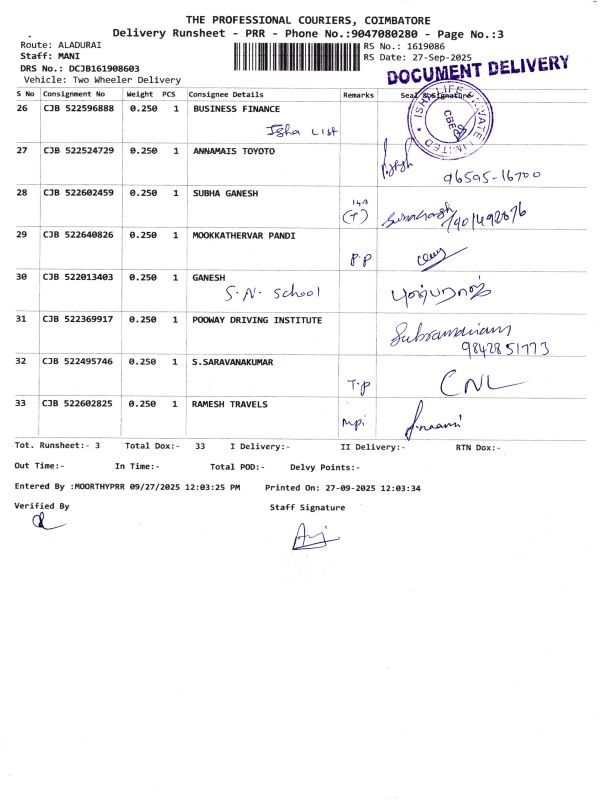 THE PROFESSIONAL COURIERS, COIMBATORE
Delivery Runsheet - PRR - Phone No.:9047080280 - Page No.:3
Route: ALADURAI RS No.: 1619086
Staff: MANI RS Date: 27-Sep-2025
DRS No.: DCJB161908603
Vehicle: Two Wheeler Delivery
DOCUMENT DELIVERY
S No Consignment No Weight PCS Consignee Details Remarks Seal & Signature
26 CJB 522596888 0.250 1 BUSINESS FINANCE
Isha List
ISHA LIFE PRIVATE LIMITED
CBE
27 CJB 522524729 0.250 1 ANNAMAIS TOYOTO
96595-16700
28 CJB 522602459 0.250 1 SUBHA GANESH
(T)
29 CJB 522640826 0.250 1 MOOKKATHERVAR PANDI
P.P
30 CJB 522013403 0.250 1 GANESH
S.N. School
31 CJB 522369917 0.250 1 POOWAY DRIVING INSTITUTE
Subramaniam
9842851773
32 CJB 522495746 0.250 1 S.SARAVANAKUMAR
T.P CNL
33 CJB 522602825 0.250 1 RAMESH TRAVELS
Tot. Runsheet:- 3 Total Dox:- 33 I Delivery:- II Delivery:- RTN Dox:-
Out Time:- In Time:- Total POD:- Delvy Points:-
Entered By :MOORTHYPRR 09/27/2025 12:03:25 PM Printed On: 27-09-2025 12:03:34
Verified By Staff Signature